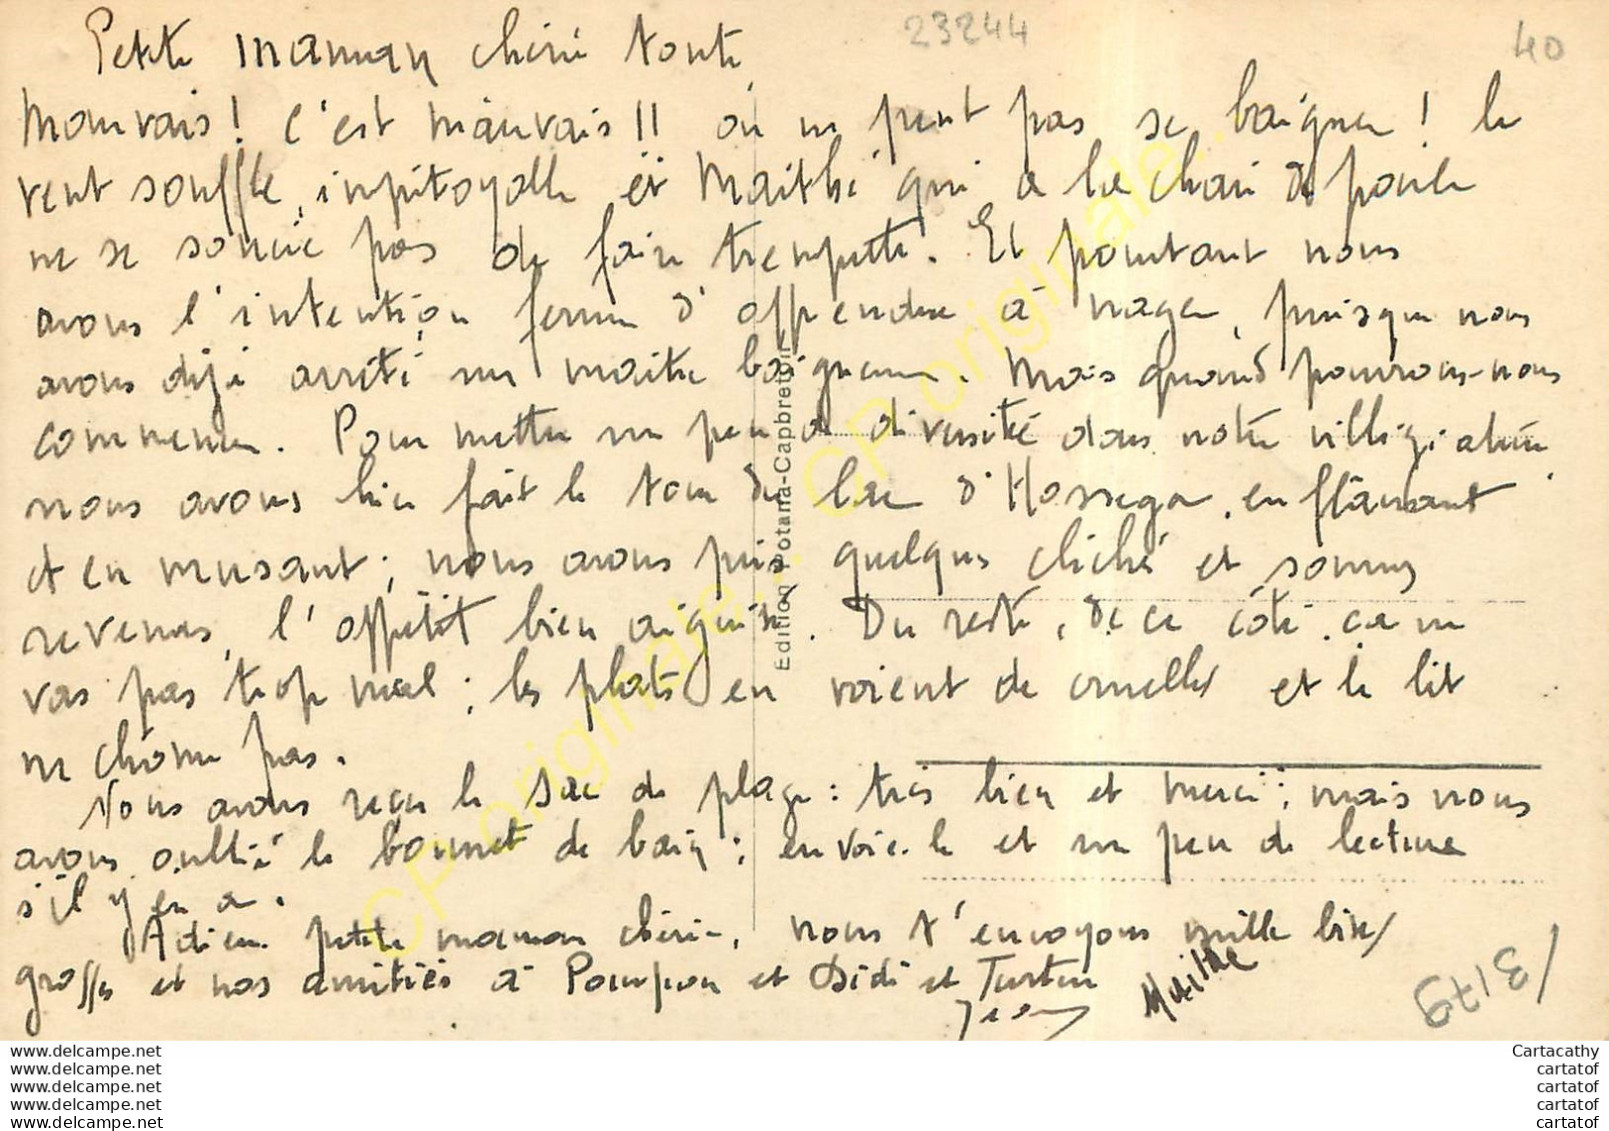 23244
40
Petite maman chérie toute
Mauvais! c'est mauvais!! on ne peut pas se baigner! le
vent souffle, impitoyable et Maithé qui a la chair de poule
ne se soucie pas de faire trempette. Et pourtant nous
avons l'intention ferme d'apprendre à nager, puisque nous
avons déjà arrêté un maitre baigneur. Mais quand pourrons-nous
commencer. Pour mettre un peu de diversité dans notre villégiature
nous avons hier fait le tour du lac d'Hossegor, en flânant
et en musant; nous avons pris quelques clichés et sommes
revenus, l'appétit bien aiguisé. Du reste, de ce côté, ça ne
vas pas trop mal; les plats en voient de cruelles et le lit
ne chôme pas.
Nous avons reçu le sac de plage: très bien et merci; mais nous
avons oublié le bonnet de bain; envoie-le et un peu de lecture
s'il y en a.
Adieu petite maman chérie, nous t'envoyons mille bises
grosses et nos amitiés à Pompon et Didi et Turtur
Jean Maithé
/3179
Edition Potama-Capbreton
CP originale... CP originale...
www.delcampe.net Cartacathy
www.delcampe.net cartatof
www.delcampe.net cartatof
www.delcampe.net cartatof
www.delcampe.net cartatof